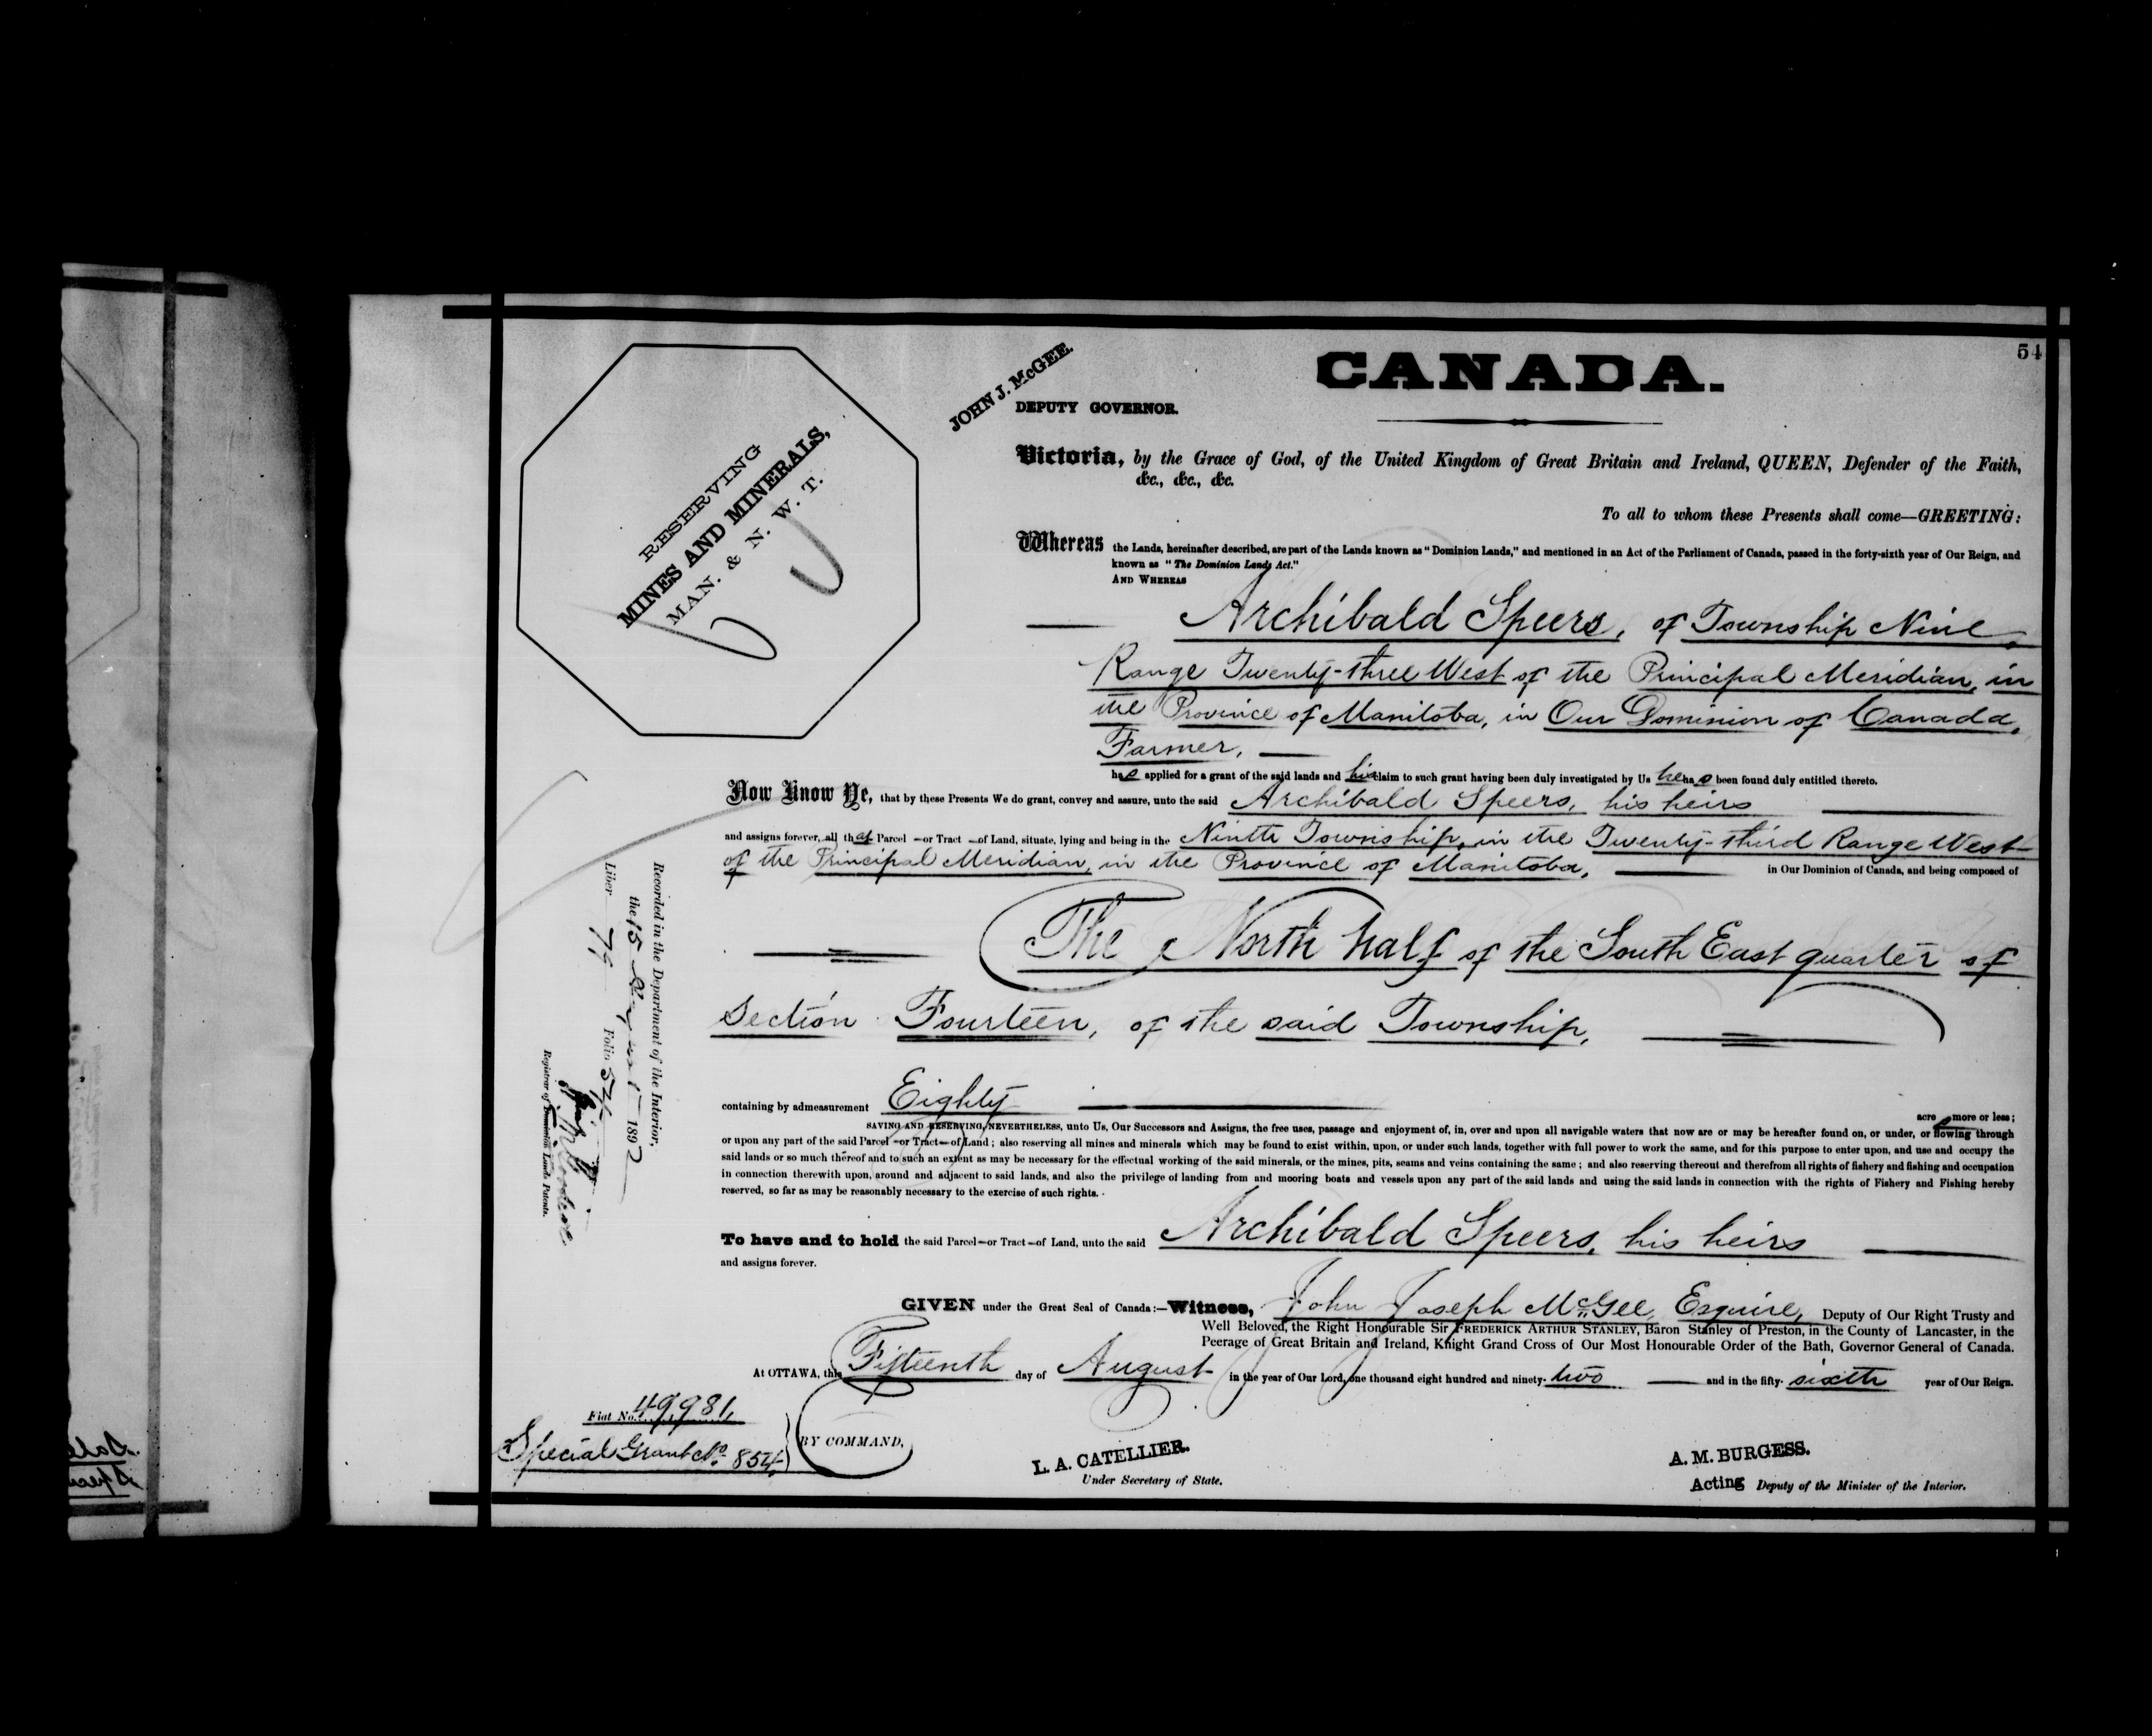 54
CANADA.
JOHN J. McGEE.
DEPUTY GOVERNOR.
RESERVING
MINES AND MINERALS,
MAN. & N. W. T.
Victoria, by the Grace of God, of the United Kingdom of Great Britain and Ireland, QUEEN, Defender of the Faith,
&c., &c., &c.
To all to whom these Presents shall come—GREETING:
Whereas the Lands, hereinafter described, are part of the Lands known as "Dominion Lands," and mentioned in an Act of the Parliament of Canada, passed in the forty-sixth year of Our Reign, and
known as "The Dominion Lands Act."
AND WHEREAS
Archibald Speers, of Township Nine,
Range Twenty-three West of the Principal Meridian, in
the Province of Manitoba, in Our Dominion of Canada,
Farmer,
has applied for a grant of the said lands and his claim to such grant having been duly investigated by Us he has been found duly entitled thereto.
Now Know Ye, that by these Presents We do grant, convey and assure, unto the said Archibald Speers, his heirs
and assigns forever, all that Parcel or Tract of Land, situate, lying and being in the Ninth Township, in the Twenty-third Range West
of the Principal Meridian, in the Province of Manitoba, in Our Dominion of Canada, and being composed of
The North half of the South East quarter of
Section Fourteen, of the said Township,
containing by admeasurement Eighty acres more or less;
SAVING AND RESERVING, NEVERTHELESS, unto Us, Our Successors and Assigns, the free uses, passage and enjoyment of, in, over and upon all navigable waters that now are or may be hereafter found on, or under, or flowing through
or upon any part of the said Parcel or Tract of Land; also reserving all mines and minerals which may be found to exist within, upon, or under such lands, together with full power to work the same, and for this purpose to enter upon, and use and occupy the
said lands or so much thereof and to such an extent as may be necessary for the effectual working of the said minerals, or the mines, pits, seams and veins containing the same; and also reserving thereout and therefrom all rights of fishery and fishing and occupation
in connection therewith upon, around and adjacent to said lands, and also the privilege of landing from and mooring boats and vessels upon any part of the said lands and using the said lands in connection with the rights of Fishery and Fishing hereby
reserved, so far as may be reasonably necessary to the exercise of such rights.
To have and to hold the said Parcel or Tract of Land, unto the said Archibald Speers, his heirs
and assigns forever.
GIVEN under the Great Seal of Canada:—Witness, John Joseph McGee, Esquire, Deputy of Our Right Trusty and
Well Beloved, the Right Honourable Sir FREDERICK ARTHUR STANLEY, Baron Stanley of Preston, in the County of Lancaster, in the
Peerage of Great Britain and Ireland, Knight Grand Cross of Our Most Honourable Order of the Bath, Governor General of Canada.
At OTTAWA, this Fifteenth day of August in the year of Our Lord, one thousand eight hundred and ninety-two and in the fifty-sixth year of Our Reign.
Fiat No. 49981,
Special Grant No. 854
BY COMMAND,
L. A. CATELLIER.
Under Secretary of State.
A. M. BURGESS.
Acting Deputy of the Minister of the Interior.
Recorded in the Department of the Interior,
the 15 August 1892
Liber 79 Folio 54
Registrar of Dominion Lands Patents.